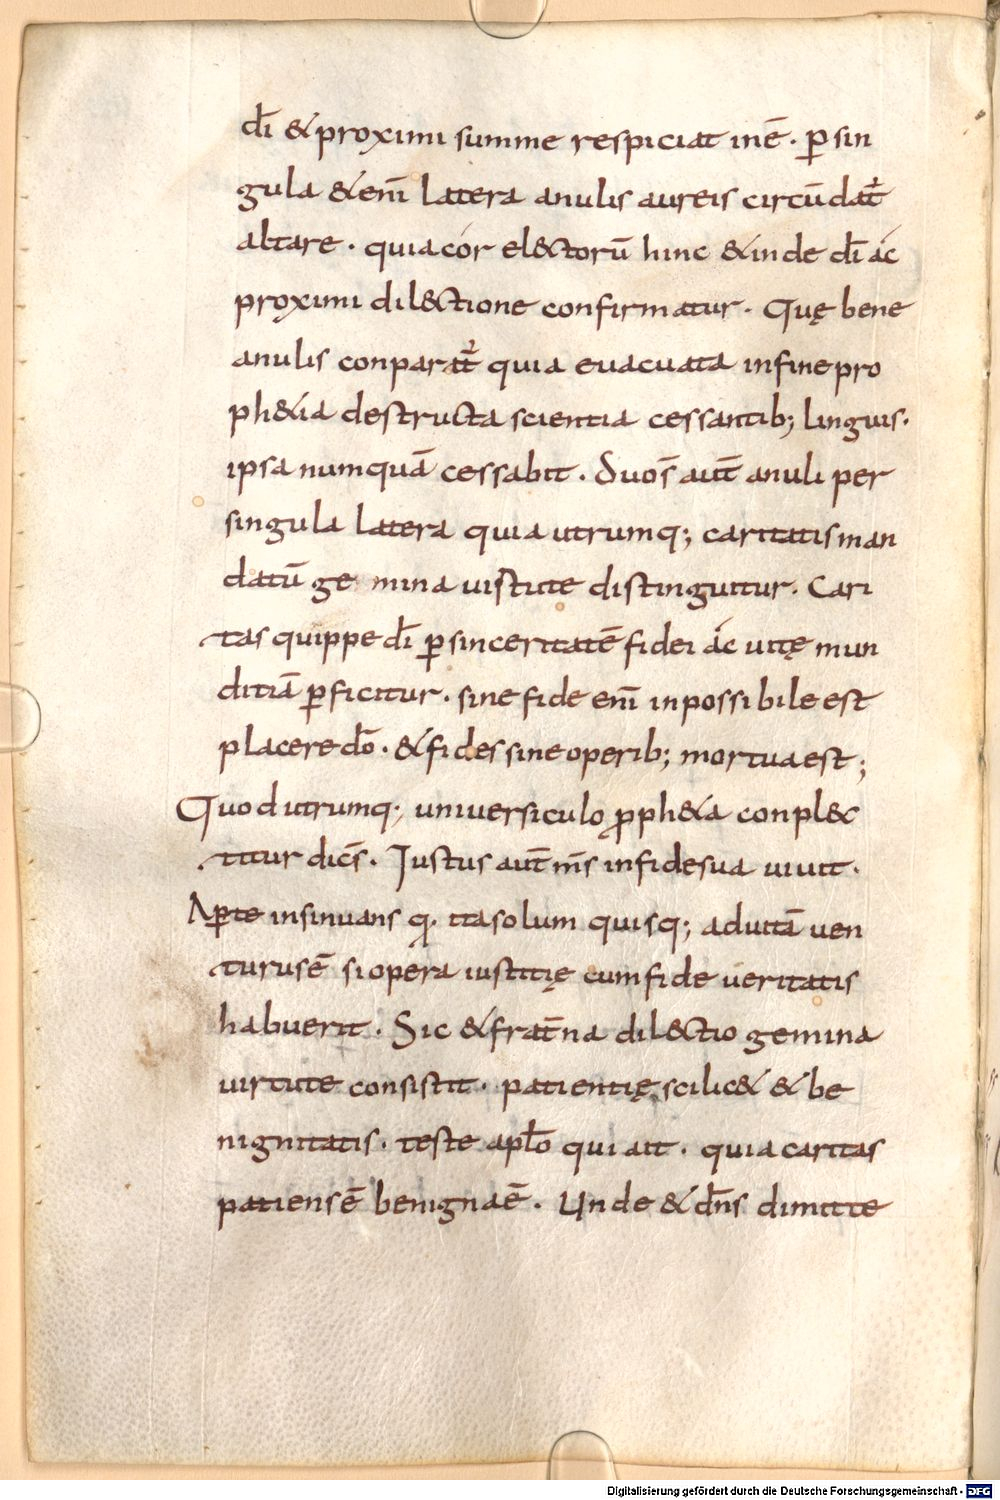 dī & proximi summe respiciat inē · ꝑ sin
gula & enī latera anulis aureis circūdat̄
altare · quia cór el&ctorū hinc & inde dī ác
proximi dil&ctione confirmatur · Quę bene
anulis conparat̄ quia euacuata in fine pro
ph&ia destructa scientia cessantib; linguis ·
ipsa numquā cessabit · duos̄ aut̄ anuli per
singula latera quia utrumq; caritatis man
datū ge mina uistute distinguitur · Cari
tas quippe dī ꝑ sinceritatē fidei ác uitę mun
ditiā ꝑficitur · sine fide enī inpossibile est
placere dō · & fides sine operib; mortua est ;
Quod utrumq; uniuersiculo ꝓph&ia conpl&c
titur dicēs · Iustus aut̄ ms̄ in fide sua uiuit ·
Aꝑte insinuans q̣ · ita solum quisq; ad uitā uen
turus ē si opera iustitię cum fide ueritatis
habuerit · Sic & frat̄na dil&ctio gemina
uirtute consistit · patientię scilic& & be
nignitatis · teste apłō qui ait · quia caritas
patiens ē benigna ē · Unde & dn̄s dimitte
Digitalisierung gefördert durch die Deutsche Forschungsgemeinschaft - DFG